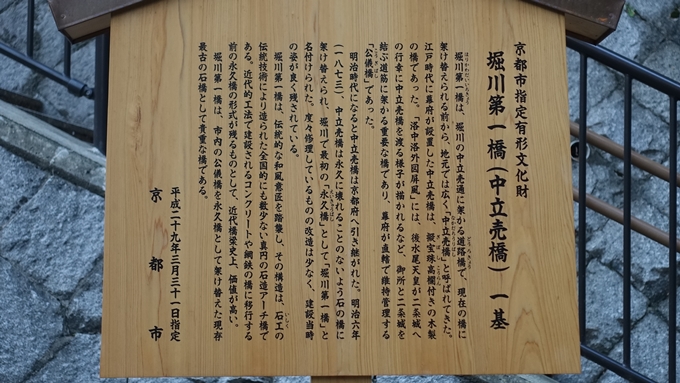 京都市指定有形文化財
堀川第一橋(中立売橋) 一基
堀川第一橋は、堀川の中立売通に架かる道路橋で、現在の橋に
架け替えられる前から、地元では広く「中立売橋」と呼ばれてきた。
江戸時代に幕府が設置した中立売橋は、擬宝珠高欄付きの木製
の橋であった。「洛中洛外図屏風」には、後水尾天皇が二条城へ
の行幸に中立売橋を渡る様子が描かれるなど、御所と二条城を
結ぶ道筋に架かる重要な橋であり、幕府が直轄で維持管理する
「公儀橋」であった。
明治時代になると中立売橋は京都府へ引き継がれた。明治六年
(一八七三)、中立売橋は永久に壊れることのないよう石の橋に
架け替えられ、堀川で最初の「永久橋」として「堀川第一橋」と
名付けられた。度々修理しているものの改造は少なく、建設当時
の姿が良く残されている。
堀川第一橋は、伝統的な和風意匠を踏襲し、その構造は、石工の
伝統技術により造られた全国的にも数少ない真円の石造アーチ橋で
ある。近代的工法で建設されるコンクリートや鋼鉄の橋に移行する
前の永久橋の形式が残るものとして、近代橋梁史上、価値が高い。
堀川第一橋は、市内の公儀橋を永久橋として架け替えた現存
最古の石橋として貴重な橋である。
平成二十九年三月三十一日指定
京都市